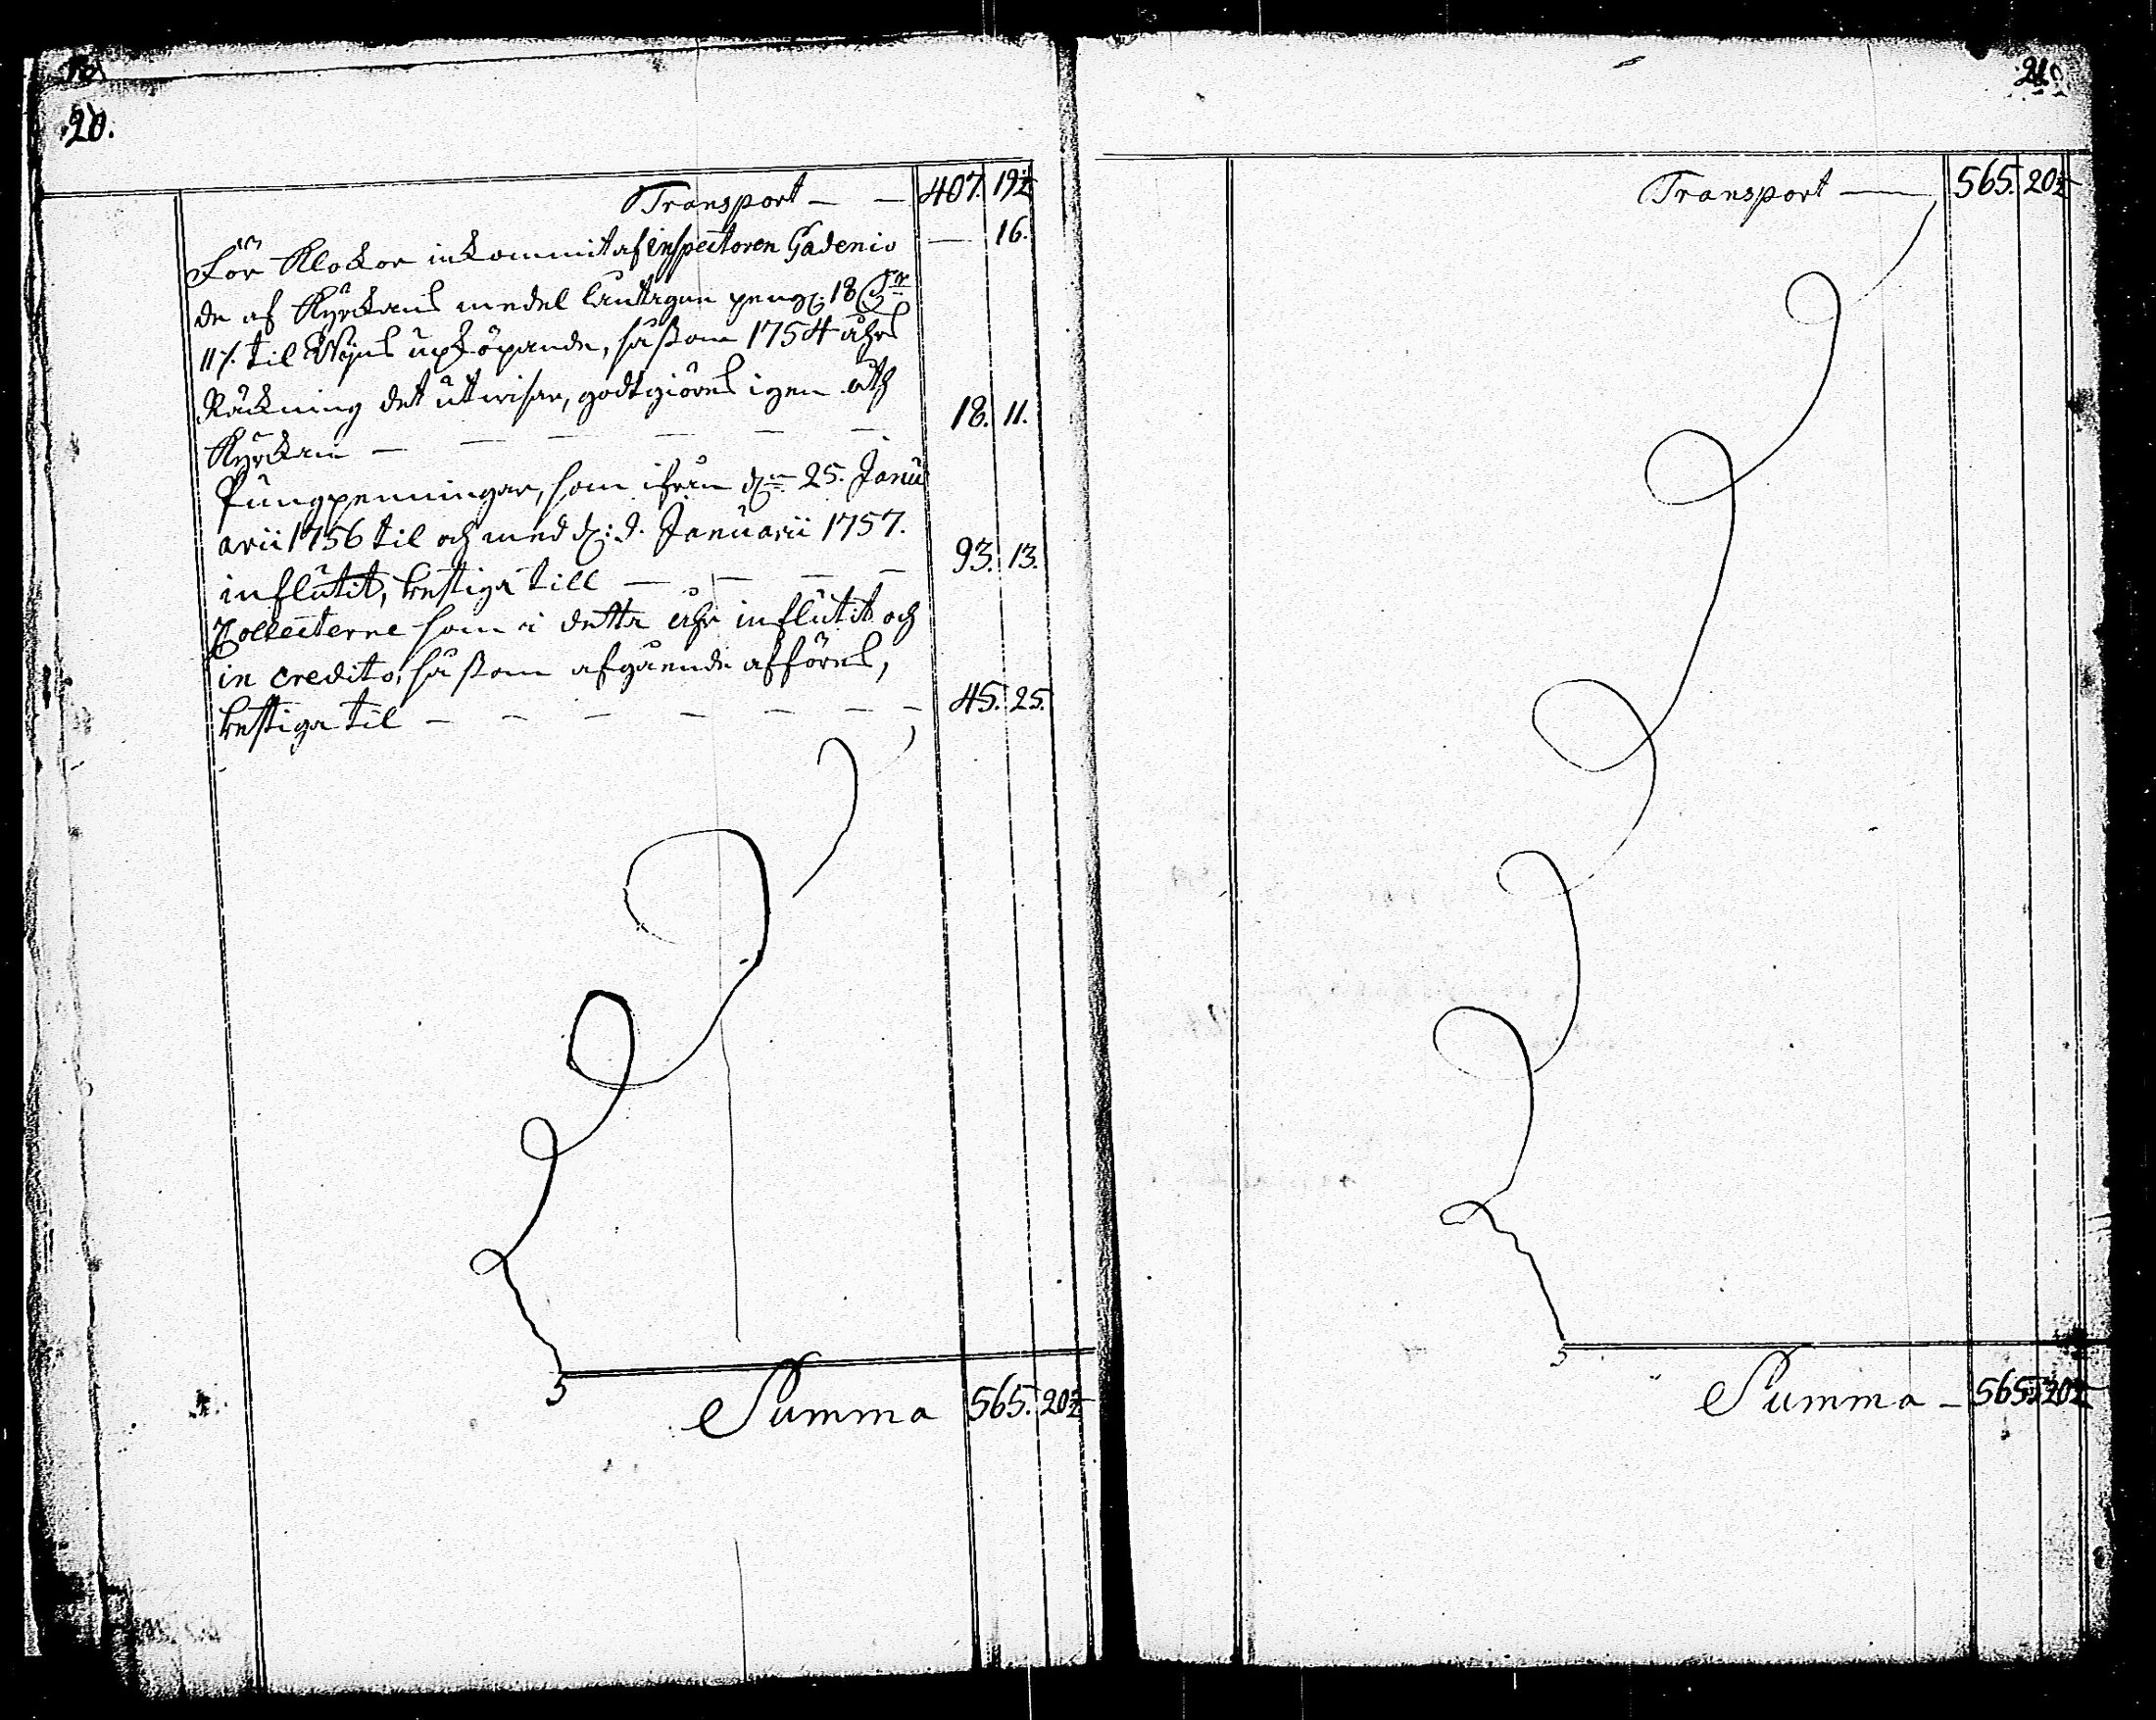 20.
Transport — — 407. 19½
För Klockor inkommit af Inspectoren Gadenio — 16.
de af Kyrckans medel låntagne peng. 18 Dr
11/. til Wijns upköpande, såsom 1754 åhrs
Räckning det utwisar, godtgiöres igen åth
Kyrckan — — — — — — 18. 11.
Pungpenningar, som ifrån dn 25. Janu
arii 1756 til och med d: 9. Januarii 1757.
influtit, bestiga till — — — — 93. 13.
Collecterne som i detta åhr influtit och
in credito, såsom afgående afföres,
bestiga til — — — — — — — 45. 25.
Summa 565. 20½
21.
Transport — 565. 20½
Summa — 565. 20½